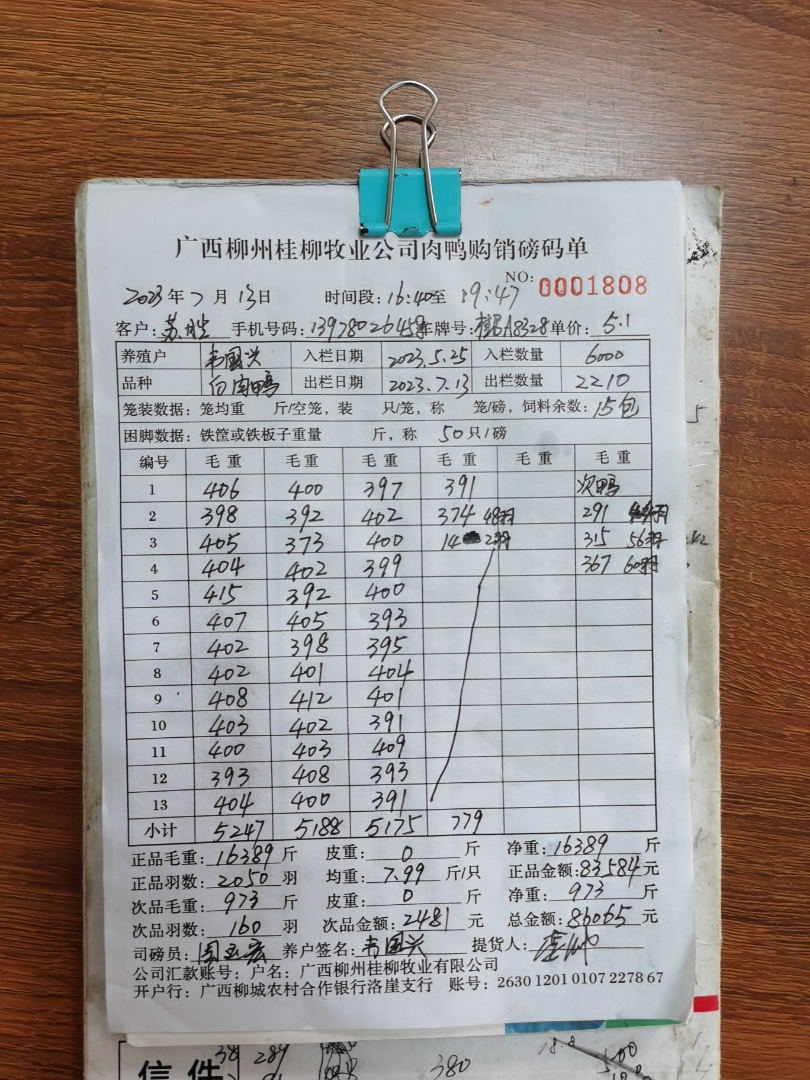 广西柳州桂柳牧业公司肉鸭购销磅码单
NO: 0001808
2023年7月13日 时间段:16:40至19:47
客户:苏胜 手机号码:13978026458 车牌号:桂BA8328 单价:5.1
养殖户 韦国兴 入栏日期 2023.5.25 入栏数量 6000
品种 白肉鸭 出栏日期 2023.7.13 出栏数量 2210
笼装数据: 笼均重 斤/空笼，装 只/笼，称 笼/磅，饲料余数:15包
困脚数据: 铁筐或铁板子重量 斤，称 50只/磅
编号 毛重 毛重 毛重 毛重 毛重 毛重
1 406 400 397 391 次鸭
2 398 392 402 374 48羽 291
3 405 373 400 14 2羽 315 56羽
4 404 402 399 367 60羽
5 415 392 400
6 407 405 393
7 402 398 395
8 402 401 404
9 408 412 401
10 403 402 391
11 400 403 409
12 393 408 393
13 404 400 391
小计 5247 5188 5175 779
正品毛重:16389斤 皮重:0斤 净重:16389斤
正品羽数:2050羽 均重:7.99斤/只 正品金额:83584元
次品毛重:973斤 皮重:0斤 净重:973斤
次品羽数:160羽 次品金额:2481元 总金额:86065元
司磅员: 养户签名:韦国兴 提货人:
公司汇款账号: 户名: 广西柳州桂柳牧业有限公司
开户行: 广西柳城农村合作银行洛崖支行 账号: 2630 1201 0107 2278 67
信件 38 289 380 18.8 500